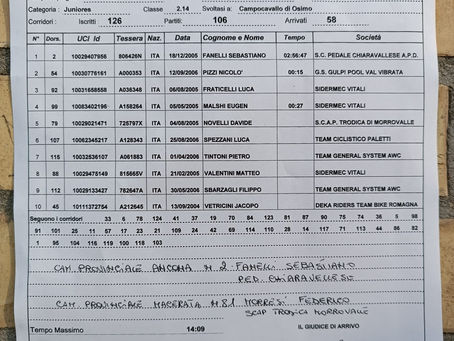 Categoria : Juniores Classe : 2.14 Svoltasi a : Campocavallo di Osimo
Corridori : Iscritti : 126 Partiti: 106 Arrivati : 58
N° Dors. UCI Id Tessera Naz. Data Cognome e Nome Tempo Società
1 2 10029407956 806426N ITA 18/12/2005 FANELLI SEBASTIANO 02:56:47 S.C. PEDALE CHIARAVALLESE A.P.D.
2 54 10030776161 A000353 ITA 12/09/2006 PIZZI NICOLO' 00:15 G.S. GULPI POOL VAL VIBRATA
3 92 10031658558 A036348 ITA 06/08/2005 FRATICELLI LUCA SIDERMEC VITALI
4 99 10083402196 A158264 ITA 05/05/2005 MALSHI EUGEN 00:27 SIDERMEC VITALI
5 79 10029021471 725797X ITA 04/08/2005 NOVELLI DAVIDE S.C.A.P. TRODICA DI MORROVALLE
6 107 10062345217 A128343 ITA 25/08/2006 SPEZZANI LUCA TEAM CICLISTICO PALETTI
7 115 10032536107 A061883 ITA 01/04/2006 TINTONI PIETRO TEAM GENERAL SYSTEM AWC
8 88 10029475149 815665V ITA 21/02/2005 VALENTINI MATTEO SIDERMEC VITALI
9 112 10029133427 782647A ITA 30/05/2006 SBARZAGLI FILIPPO TEAM GENERAL SYSTEM AWC
10 45 10111372754 A212645 ITA 13/09/2004 VETRICINI JACOPO DEKA RIDERS TEAM BIKE ROMAGNA
Seguono i corridori 33 6 78 124 41 39 70 20 84 34 123 81 87 90 75 36 5 98
91 101 25 11 57 23 21
1 95 104 116 100 118 103
CAM. PROVINCIALE ANCONA N 2 FANELLI SEBASTIANO
PED. CHIARAVALLESE
CAM. PROVINCIALE MACERATA N 81 MORRESI FEDERICO
SCAP TRODICA MORROVALLE
Tempo Massimo 14:09 IL GIUDICE DI ARRIVO